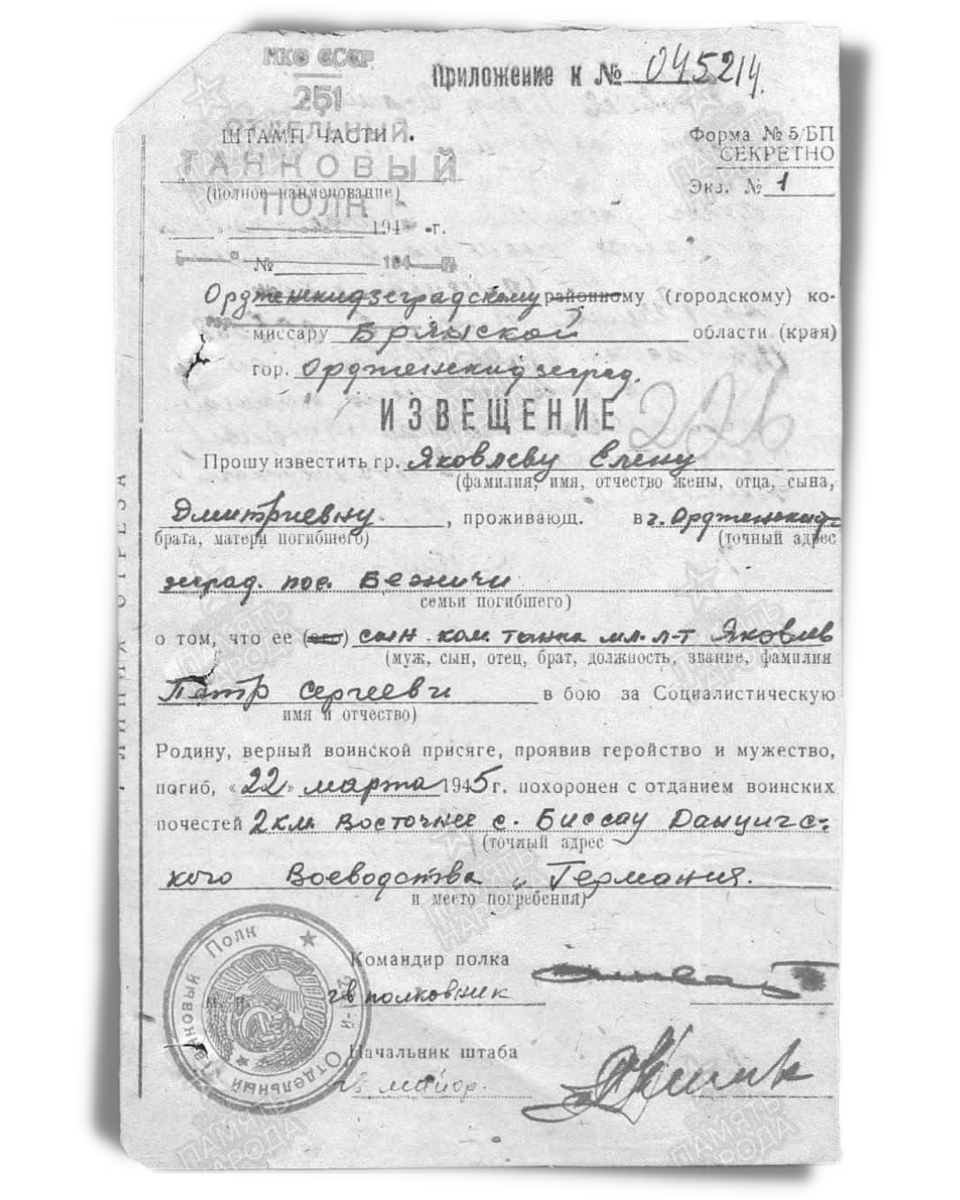 НКО СССР
Приложение к № 045214.
251
ОТДЕЛЬНЫЙ
ШТАМП ЧАСТИ.
Форма № 5/БП
ТАНКОВЫЙ
СЕКРЕТНО
(полное наименование)
Экз. № 1
ПОЛК
194 г.
№ 194
Орджникидзеградскому районному (городскому) ко-
гор миссару Брянской области (края)
гор. Орджникидзеград.
ИЗВЕЩЕНИЕ
226
Прошу известить гр. Яковлеву Елену
(фамилия, имя, отчество жены, отца, сына,
Дмитриевну, проживающ. в г. Орджникид-
брата, матери погибшего) (точный адрес
зеград. пос. Бежичи
семьи погибшего)
о том, что ее (его) сын ком. танка мл. л-т Яковлев
(муж, сын, отец, брат, должность, звание, фамилия
Петр Сергеевич в бою за Социалистическую
имя и отчество)
Родину, верный воинской присяге, проявив геройство и мужество,
погиб, «22» марта 1945 г. похоронен с отданием воинских
почестей 2 км. Восточнее с. Биссау Данцигс-
(точный адрес
кого Воеводства Германия.
и место погребения)
ЛИНИЯ ОТРЕЗА
Командир полка
гв полковник
Начальник штаба
гв майор.
М. П.
251-й Отдельный Танковый Полк
ПАМЯТЬ НАРОДА